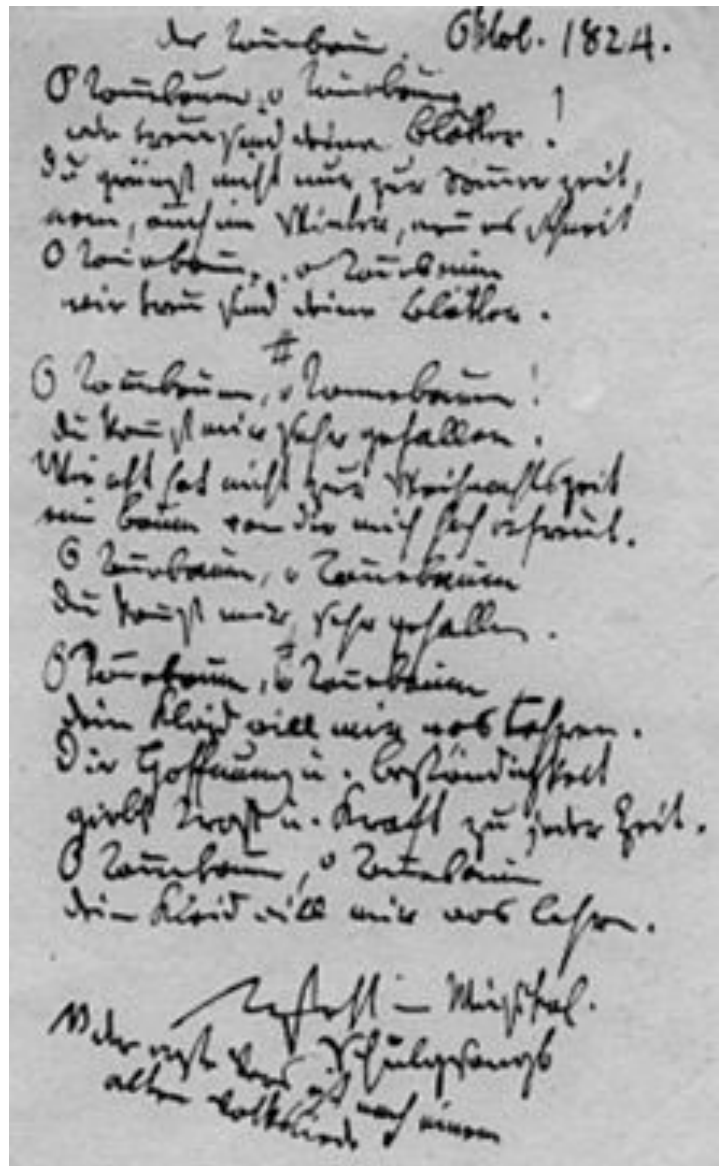 Der Tannenbaum. Oktob. 1824.
O Tannenbaum, o Tannenbaum
wie treu sind deine Blätter!
Du grünst nicht nur zur Sommerzeit,
nein, auch im Winter, wenn es schneit
O Tannenbaum, o Tannenbaum
wie treu sind deine Blätter.
O Tannebaum, o Tannebaum!
du kannst mir sehr gefallen.
Wie oft hat nicht zur Weihnachtszeit
ein Baum von dir mich hoch erfreut.
O Tannebaum, o Tannebaum
du kannst mir sehr gefallen.
O Tannebaum, o Tannebaum
dein Kleid will mich was lehren.
Die Hoffnung u. Beständigkeit
giebt Trost u. Kraft zu jeder Zeit.
O Tannebaum, o Tannebaum
dein Kleid will mich was lehren.
Schulgesangb
der erste Vers ist nach einem
alten Volksliede